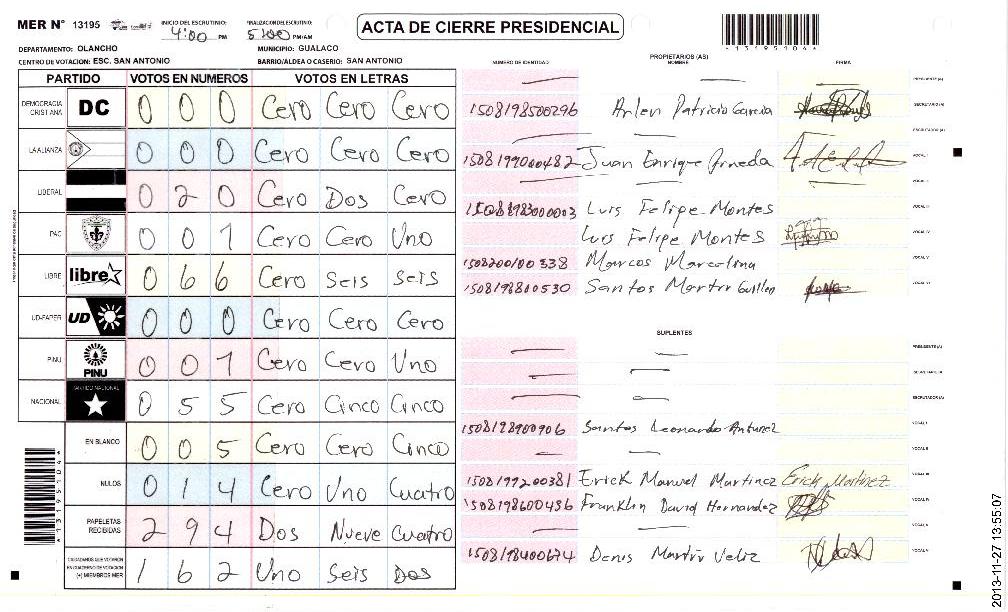 MER N° 13195
INICIO DEL ESCRUTINIO: 4:00 PM
FINALIZACION DEL ESCRUTINIO: 5:00 PM/AM
ACTA DE CIERRE PRESIDENCIAL
*1319510 4*
DEPARTAMENTO: OLANCHO
MUNICIPIO: GUALACO
CENTRO DE VOTACION: ESC. SAN ANTONIO
BARRIO/ALDEA O CASERIO: SAN ANTONIO
PARTIDO VOTOS EN NUMEROS VOTOS EN LETRAS
DEMOCRACIA CRISTIANA DC 0 0 0 Cero Cero Cero
LA ALIANZA 0 0 0 Cero Cero Cero
LIBERAL 0 2 0 Cero Dos Cero
PAC 0 0 1 Cero Cero Uno
LIBRE libre 0 6 6 Cero Seis Seis
UD-FAPER UD 0 0 0 Cero Cero Cero
PINU PINU 0 0 1 Cero Cero Uno
NACIONAL PARTIDO NACIONAL 0 5 5 Cero Cinco Cinco
EN BLANCO 0 0 5 Cero Cero Cinco
NULOS 0 1 4 Cero Uno Cuatro
PAPELETAS RECIBIDAS 2 9 4 Dos Nueve Cuatro
CIUDADANOS QUE VOTARON EN CUADERNO DE VOTACION (+) MIEMBROS MER 1 6 2 Uno Seis Dos
PROPIETARIOS (AS)
NUMERO DE IDENTIDAD NOMBRE FIRMA
PRESIDENTE (A)
1508198500296 Arlen Patricio Garcia SECRETARIO (A)
ESCRUTADOR (A)
1508199000482 Juan Enrique VOCAL I
VOCAL II
1508198300003 Luis Felipe Montes VOCAL III
Luis Felipe Montes VOCAL IV
1508200100338 Marcos Marcelina VOCAL V
1508198800530 Santos Martir Guillen VOCAL VI
SUPLENTES
PRESIDENTE (A)
SECRETARIO (A)
ESCRUTADOR (A)
1508198900906 Santos Leonardo Antunez VOCAL I
VOCAL II
1508199200381 Erick Manuel Martinez Erick Martinez VOCAL III
1508198600436 Franklin David Hernandez VOCAL IV
VOCAL V
1508198400674 Denis Martir Veliz VOCAL VI
2013-11-27 13:55:07